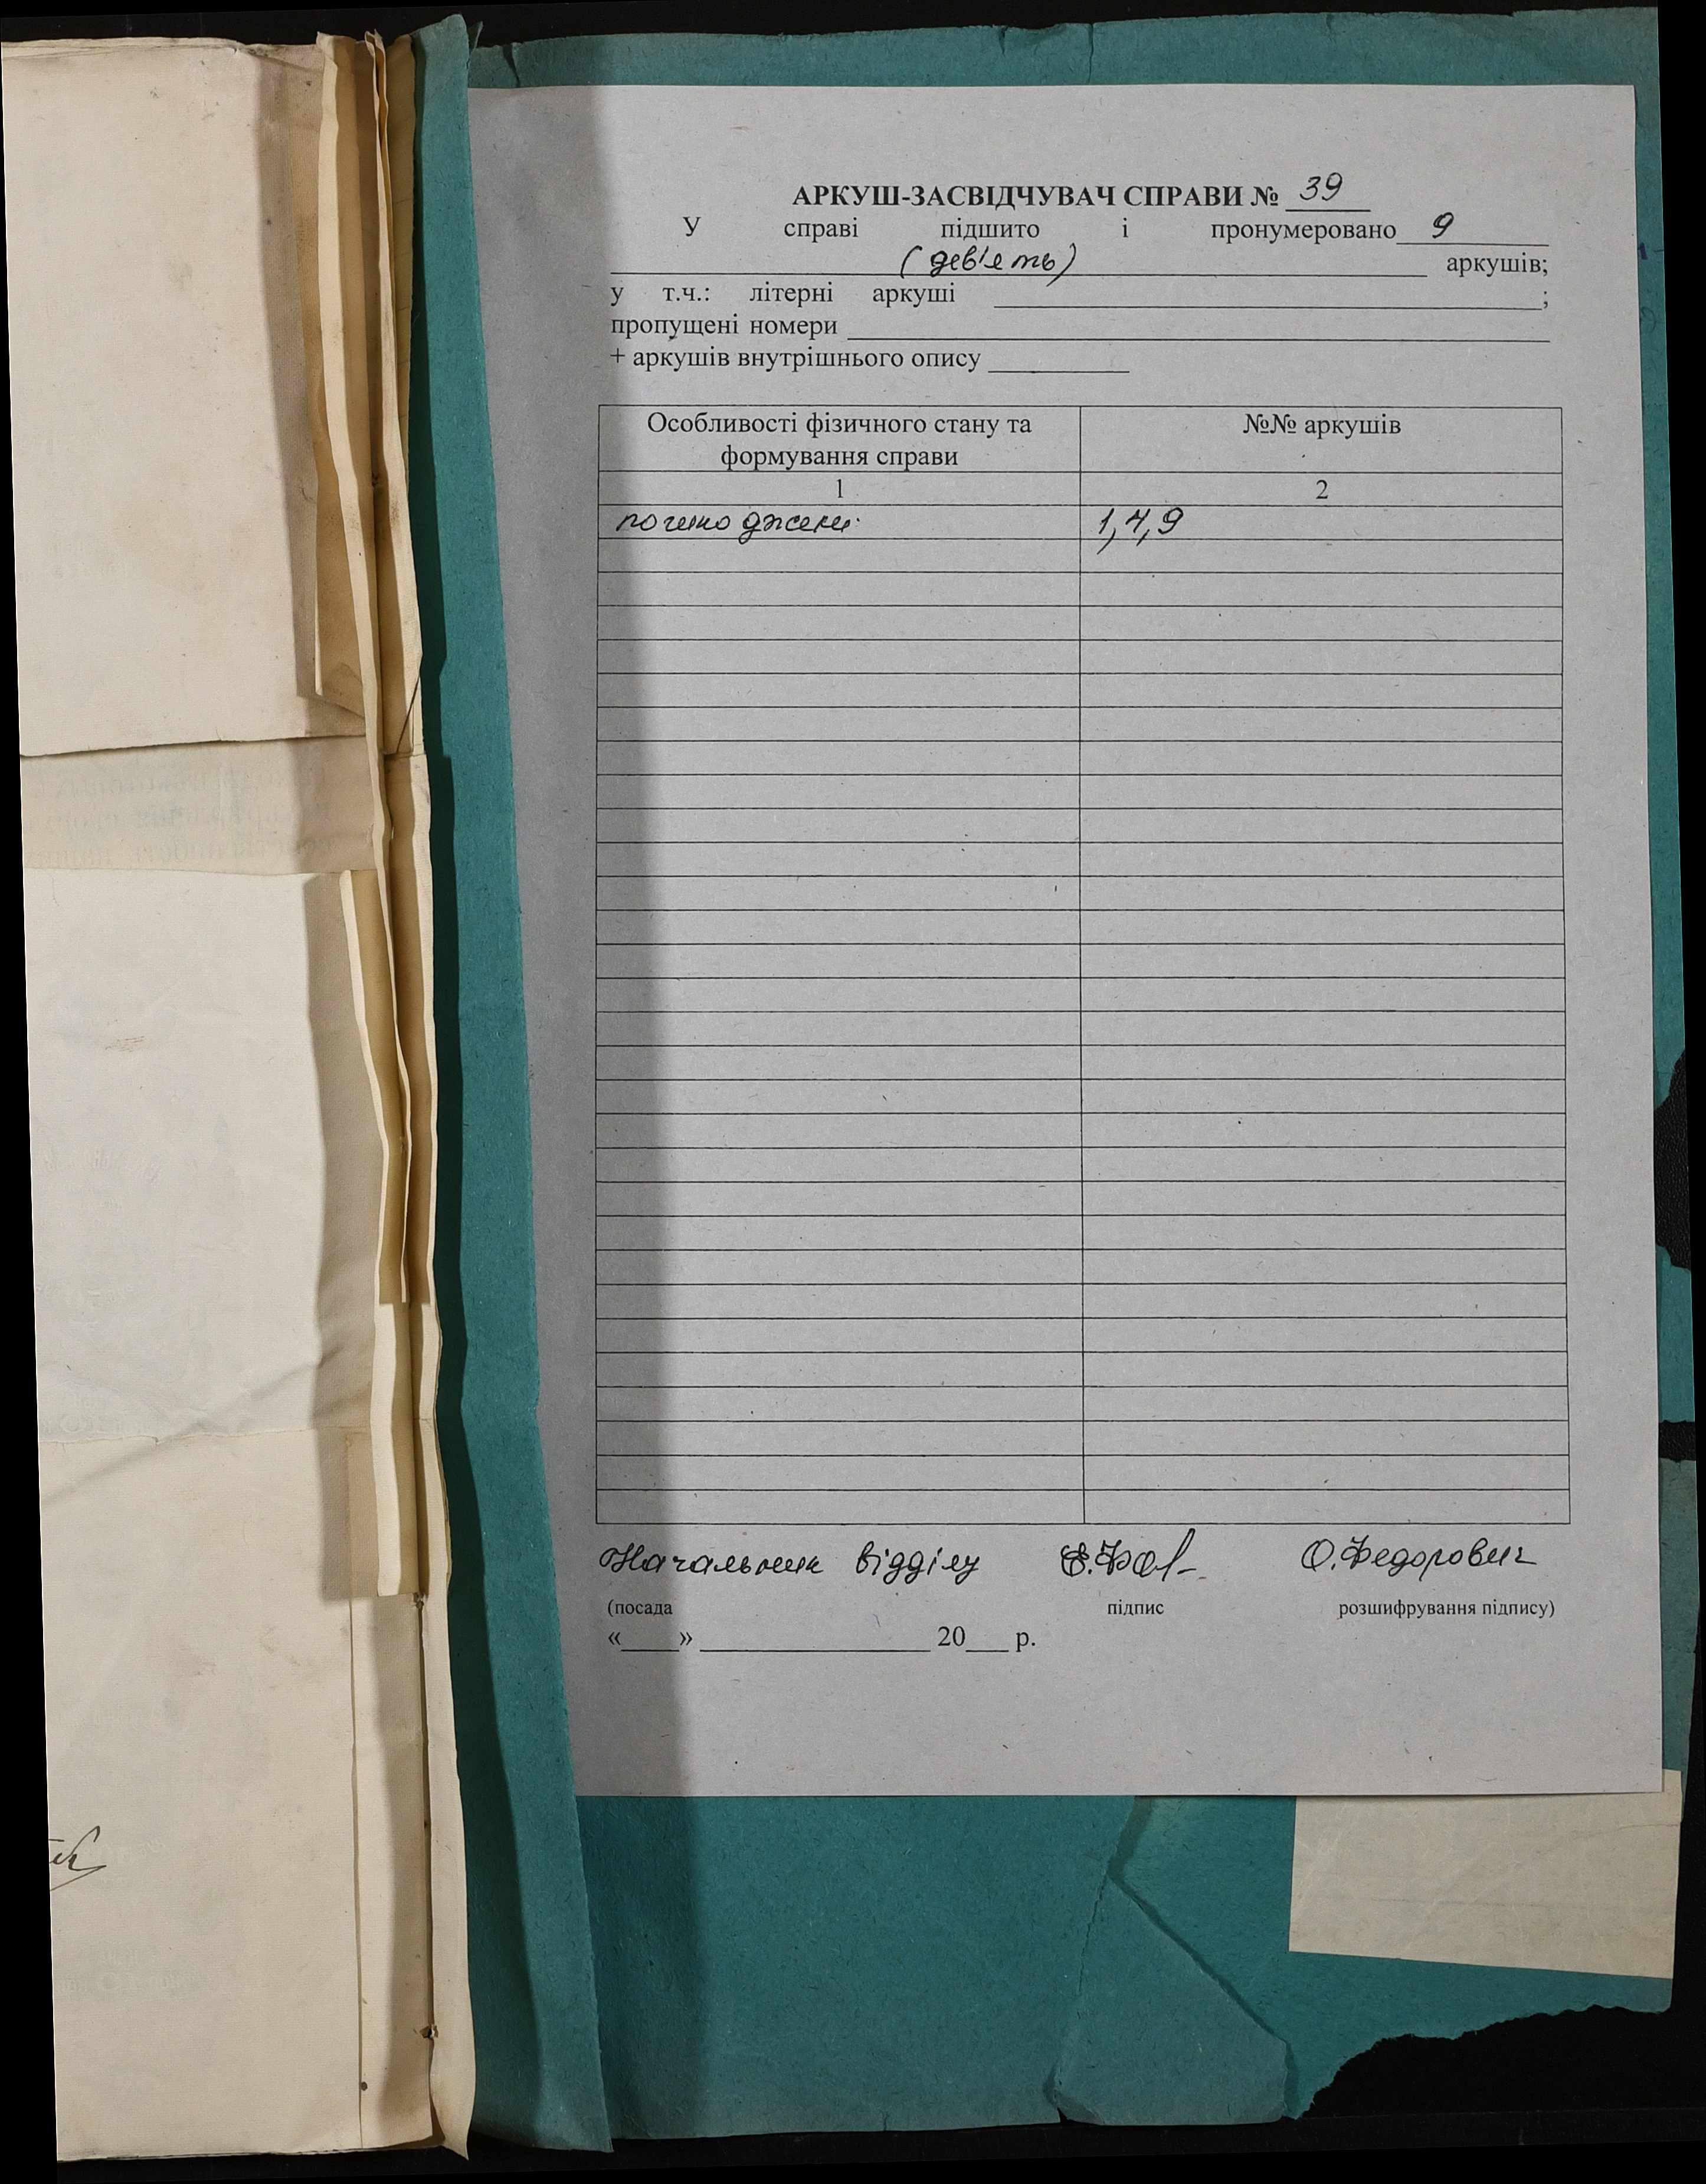 АРКУШ-ЗАСВІДЧУВАЧ СПРАВИ № 39
У справі підшито і пронумеровано 9
(дев'ять) аркушів;
у т.ч.: літерні аркуші ;
пропущені номери
+ аркушів внутрішнього опису
Особливості фізичного стану та формування справи
№№ аркушів
1
2
1,4,9
Начальник відділу
О.Федорович
(посада
підпис
розшифрування підпису)
«____» ________________ 20___ р.